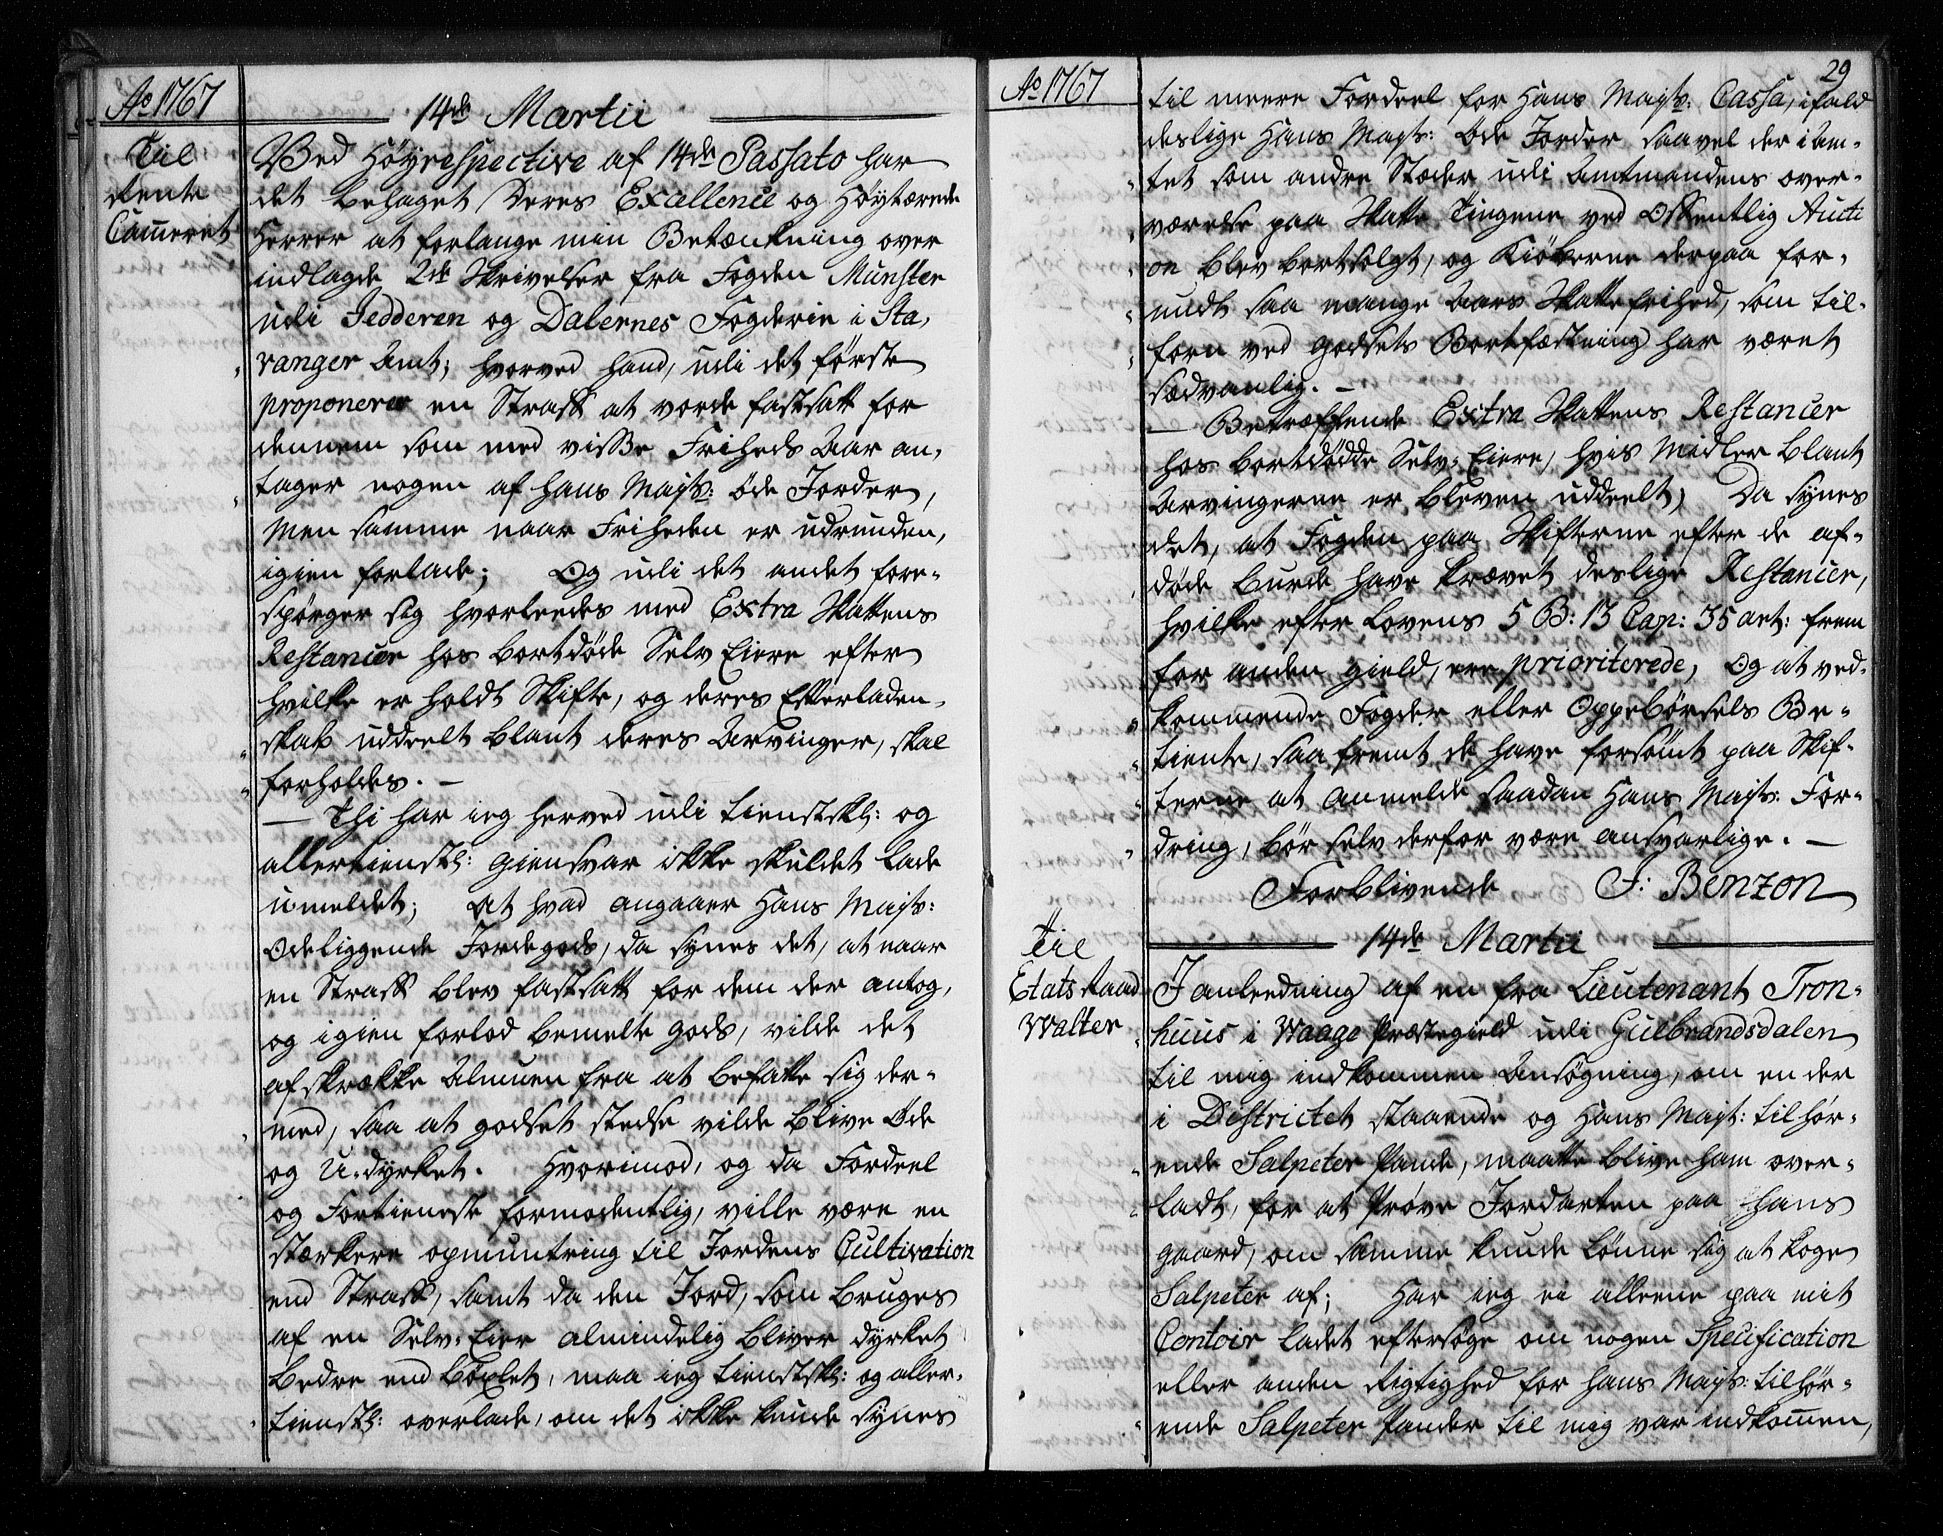 Ao 1767
14de Martii
Til
Rente
Cam̄eret
Ved Höyrespective af 14de Passato har
det behaget Deres Excellence og Höytærede
Herrer at forlange min Betænkning over
indlagde 2de Skrivelser fra Fogden Munster
udi Jedderen og Dalernes Fogderie i Sta,
vanger Amt; hvorved hand, udi det første
proponerer en Straff at vorde fastsatt for
dennem som med visse Friheds Aar an,
tager nogen af Hans Mayts: öde Jorder,
Men samme naar Friheden er udrunden,
igien forlade; Og udi det andet fore-
spörger sig hvorleedes med Extra Skattens
Restancer hos bortdöde Selv Eiere efter
hvilke er holdt Skifte, og deres Efterladen-
skab uddeelt blant deres Arvinger, skal
forholdes. —
— Thi har ieg herved udi tienstskl: og
allertienstl: giensvar ikke skuldet lade
umeldet; At hvad angaaer Hans Mayts:
Ödeliggende Jordegods, da synes det, at naar
en Straff blev fastsatt for dem der antog,
og igien forlod bemelte gods, vilde det
afskrække Almuen fra at befatte sig der-
med, saa at godset stedse vilde blive Öde
og U-dyrket. Hvorimod, og da Fordeel
og Fortieneste formodentlig, ville være en
stærkere opmuntring til Jordens Cultivation
end Straff, samt da den Jord, som bruges
af en Selv-Eier almindelig bliver dyrket
bedre end böxlet, maa ieg tienstskl: og aller-
tienstl: overlade, om det ikke kunde synes
Ao 1767
29
til meere Fordeel for Hans Mayts: Cassa, ifald
deslige Hans Mayts: Öde Jorder saavel der i Am-
tet som andre Stæder udi Amtmandens over-
værelse paa Skatte Tingene ved Offentlig Aucti
on blev bortsolgt, og Kiöberne derpaa for-
undt saa mange Aars Skattefrihed, som til-
forn ved godsets Bortfæstning har været
sædvanlig. —
— Betræffende Extra Skattens Restancer
hos bortdödde Selv-Eiere, hvis Midler blant
Arvingerne er bleven uddeelt, Da synes
det, at Fogden paa Skifterne efter de af-
döde burde have krævet deslige Restancer,
hvilke efter Lovens 5 B: 13 Cap: 35 art: frem
for anden gield, ere prioriterede, Og at ved-
kommende Fogder eller Oppebörsels Be-
tiente, saafremt de have forsömt paa Skif-
terne at anmelde saadan Hans Mayts: For-
dring, bör selv derfor være ansvarlige. —
Forblivende J: Benzon
14de Martii
Til
Etats Raad
Walter
I anleedning af en fra Lieutenant Tron-
huus i Waage Præstegield udi Gulbrandsdalen
til mig indkommen Ansögning, om en der
i Destrictet staaende og Hans Mayt: tilhör-
ende Salpeter Pande, maatte blive ham over-
ladt, for at Pröve Jordarten paa hans
gaard, om samme kunde lönne sig at koge
Salpeter af; Har ieg ei alleene paa mit
Contoir ladet eftersöge om nogen Specification
eller anden Rigtighed for Hans Mayts: tilhör-
ende Salpeter Pander til mig var indkom̄en,